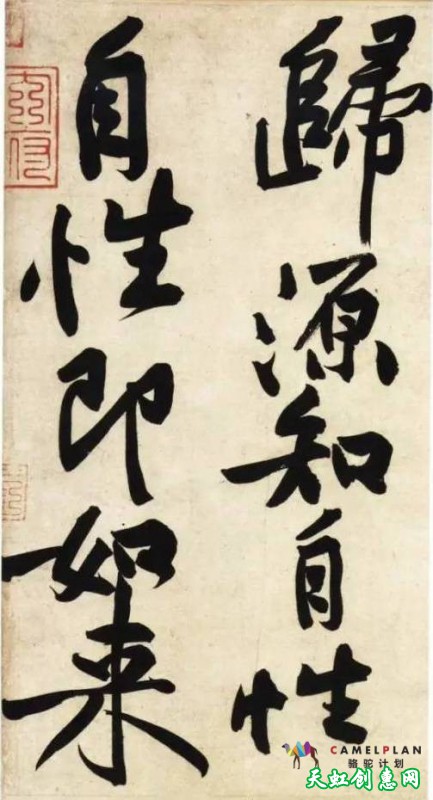 歸源知自性
自性即如来
CAMELPLAN
骆驼计划
天虹创惠网